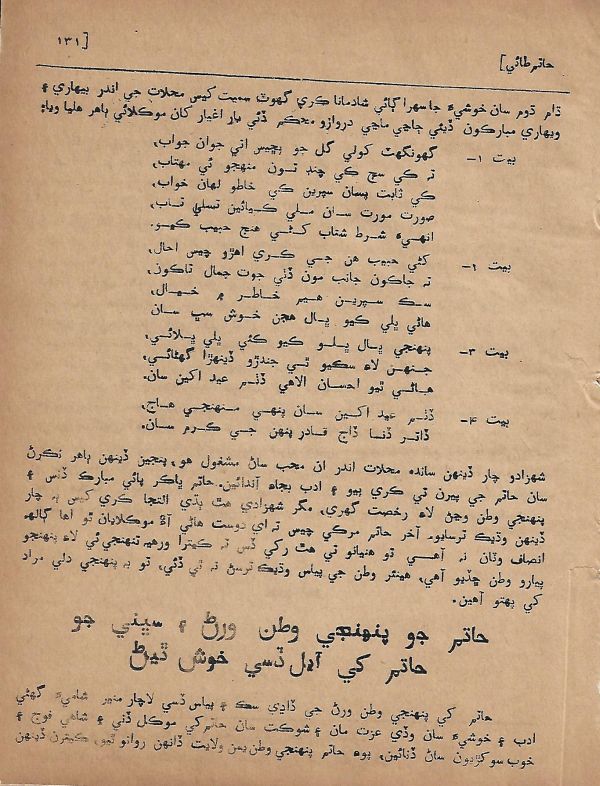 حاتم طائي]
[۱۳۱
ڌام ڌوم سان خوشيءَ جا سهرا ڳائي شادمانا ڪري گهوٽ سميت ڪيس محلات جي اندر بيهاري ۽
ويهاري مبارڪون ڏيئي ڄاڃي ماڃي دروازو محڪم ڏئي يار اغيار کان موڪلائي ٻاهر هليا ويا:
بيت ۱- گهونگهٽ کولي گل جو پڇيس اتي جوان جواب،
تہ ڪي سڄ ڪي چنڊ تون منهجو ئي مهتاب،
ڪي ثابت پسان سپرين ڪي خاطو لهان خواب،
صورت مورت سان ملي ڪيائين تسلي تاب،
انهيءَ شرط شتاب ڪٺي هنڄ حبيب ڪيو.
بيت ۲- ڪٺي حبيب هن جي ڪري اهڙو چيس احوال،
تہ جاڪون جانب مون ڏٺي جوت جمال تاڪون،
سڪ سپرين هيم خاطر ۾ خيال،
هاڻي ڀلي ڪيو ڀال هڃن خوش سڀ سان
بيت ۳- پنهنجي ڀال ڀلو ڪيو ڪٺي ڀلي ڀلائي،
جنهن لاءِ سڪيو ٿي جندڙو ڏينهڙا گهڻائي،
هاڻي ٿيو احسان الاهي ڏٺم عيد اکين سان.
بيت ۴- ڏٺم عيد اکين سان پنهي منهنجي هاڄ،
ڏاتر ڏنسا ڏاڄ قادر پنهن جي ڪرم سان.
شهزادو چار ڏينهن ساندہ محلات اندر ان محب ساڻ مشغول هو، پنجين ڏينهن ٻاهر نڪرڻ
سان حاتم جي پيرن تي ڪري پيو ۽ ادب بجاءِ آندائين. حاتم ڀاڪر پائي مبارڪ ڏنس ۽
پنهنجي وطن وڃڻ لاءِ رخصت گهري، مگر شهزادي هٿ ٻڌي التجا ڪري ڪيس ٻہ چار
ڏينهن وڌيڪ ترسايو. آخر حاتم مرڪي چيس تہ اي دوست هاڻي آءٌ موڪلايان ٿو اها ڳالهہ
انصاف وٽان نہ آهي تو هنيانو تي هٿ رکي ڏس تہ ڪيترا ورهيہ تنهنجي ئي لاءِ پنهنجو
پيارو وطن ڇڏيو آهي، هينئر وطن جي پياس وڌيڪ ترسڻ نہ ٿي ڏئي، تو بہ پنهنجي دلي مراد
کي پهتو آهين.
حاتم جو پنهنجي وطن ورڻ ۽ سڀني جو
حاتم کي آيل ڏسي خوش ٿيڻ
حاتم کي پنهنجي وطن ورڻ جي ڏاڍي سڪ ۽ پياس ڏسي لاچار منير شاميءَ گهڻي
ادب ۽ خوشيءَ سان وڏي عزت مان ۽ شوڪت سان حاتم کي موڪل ڏني ۽ شاهي فوج ۽
خوب سوکڙيون ساڻ ڏنائين، پوءِ حاتم پنهنجي وطن يمن ولايت ڏانهن روانو ٿيو، ڪيترن ڏينهن